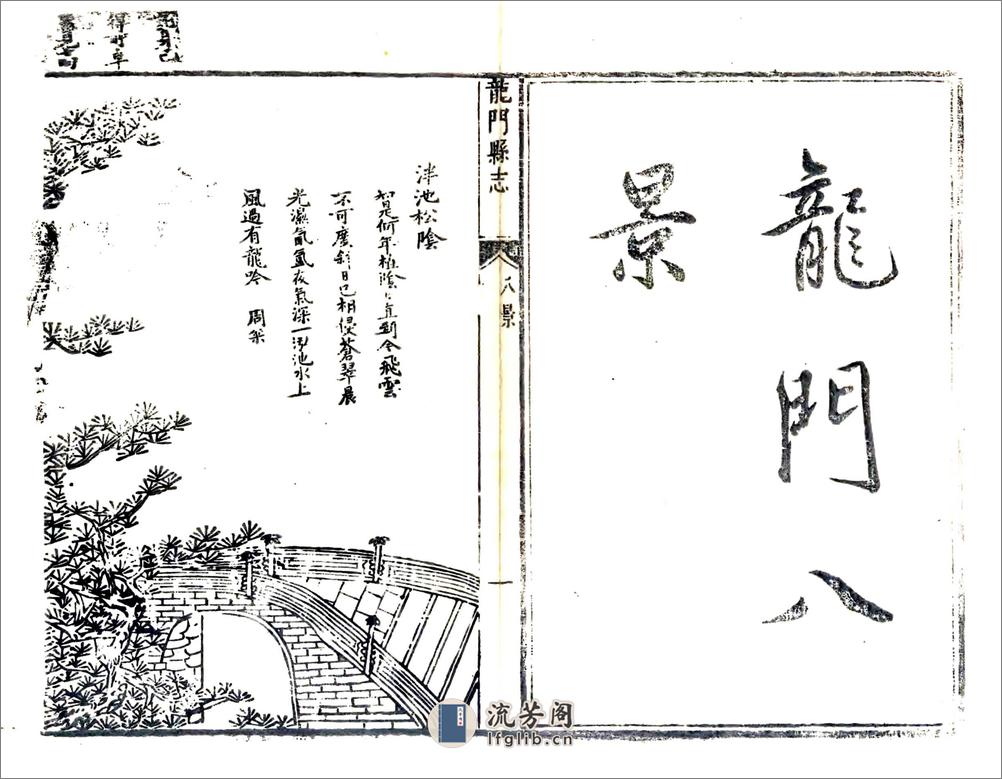 龍門八
景
龍門縣志
八景
一
泮池松陰
智是何年植陰々直到今飛雲
不可度斜日已相侵蒼翠晨
光濕氤氳夜氣深一泓池水上
風過有龍吟 周榘
得此卓
流芳阁
lfglib.cn